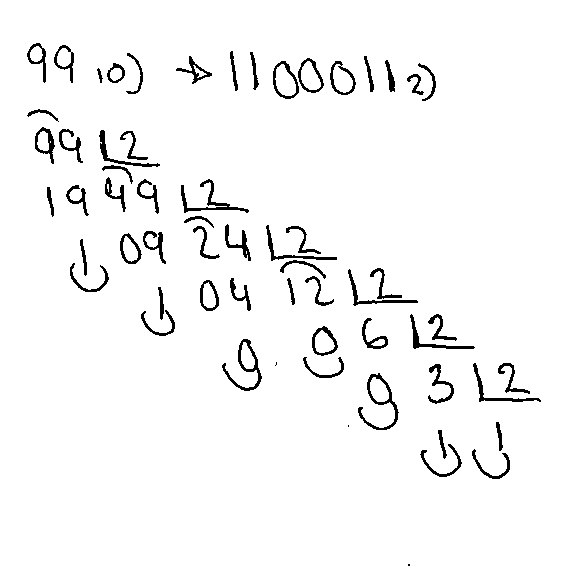 99 10) → 1100011 2)
99 2
19 49 2
1 09 24 2
1 04 12 2
0 0 6 2
0 3 2
1 1